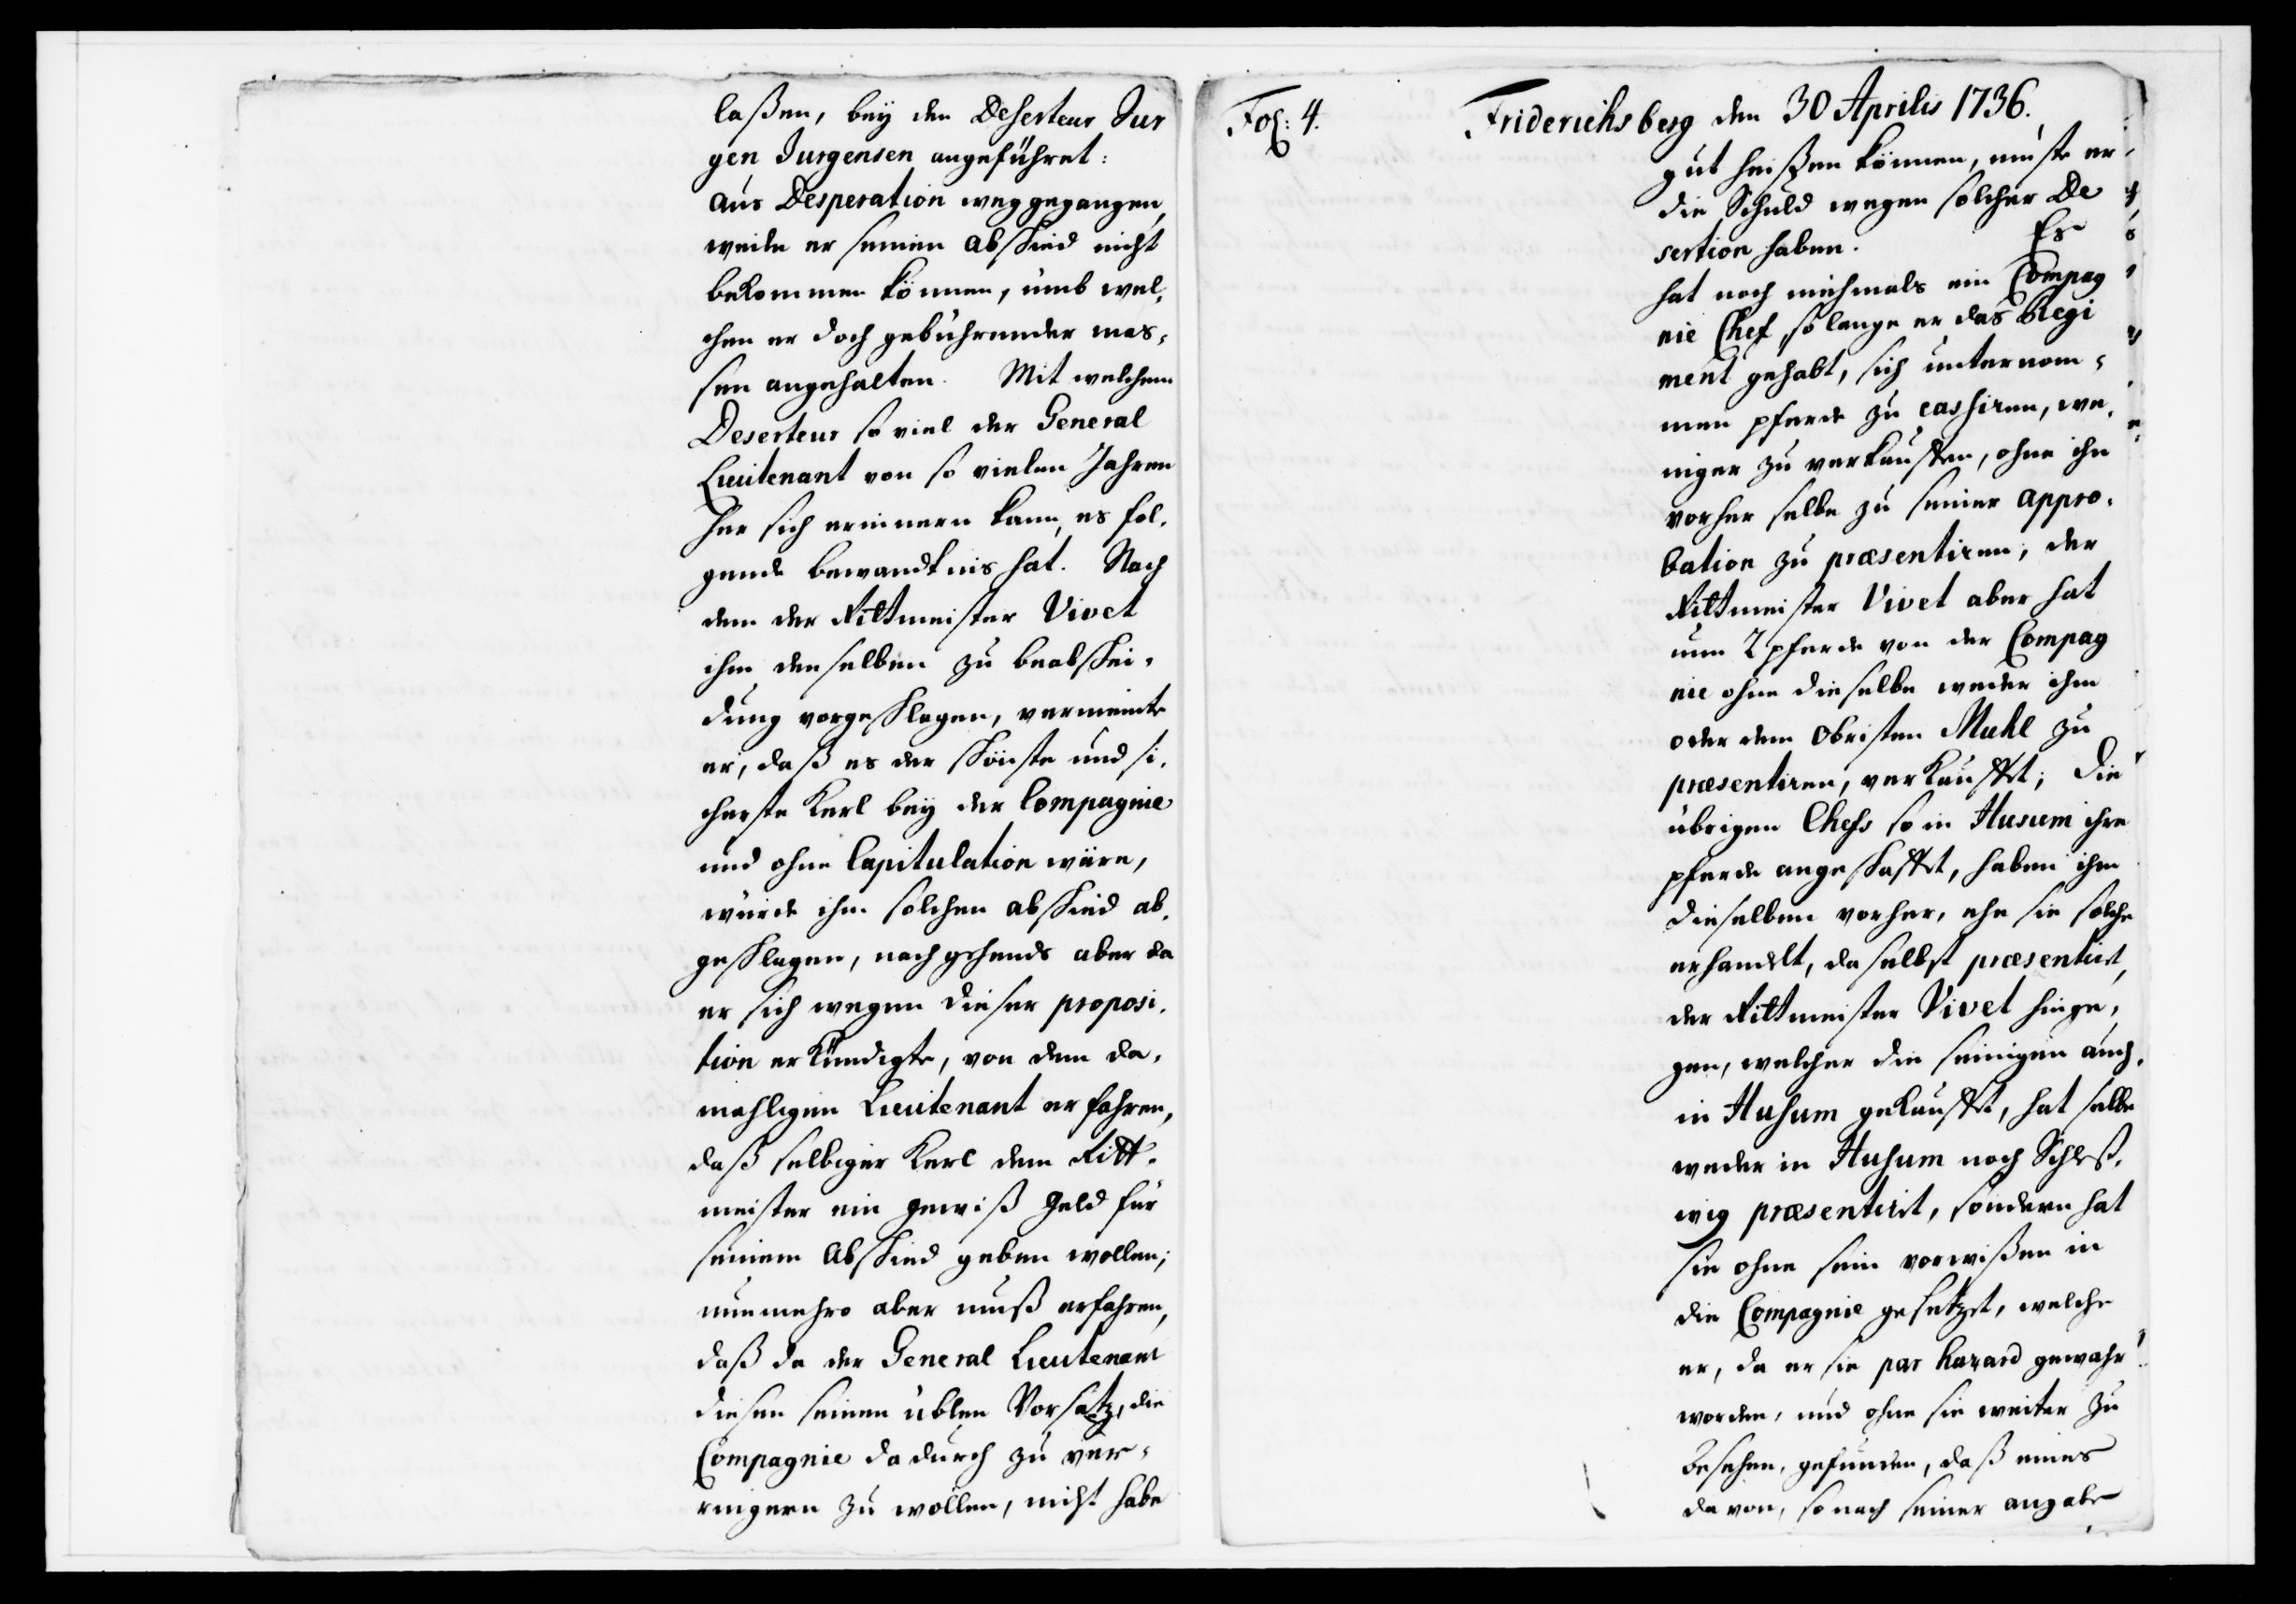 laßen, bey den Deserteur Jur
gen Jurgensen angeführet:
aus Desperation weggegangen,
weile er seinen abschied nicht
bekommen können, umb wel-
chen er doch gebührender mas-
sen angehalten. Mit welchem
Deserteur so viel der General
Lieutenant von so vielen Jahren
her sich erinnern kann, es fol-
gende bewandtnis hat. Nach
dem der Rittmeister Vivet
ihm denselben zu beabschei-
dung vorgeschlagen, vermeinte
er, daß es der schönste und si-
cherste Kerl bey der Compagnie
und ohne Capitulation wäre,
würde ihm solchen abschied ab-
geschlagen, nachgehends aber da
er sich wegen dieser proposi-
tion erkündigte, von dem da-
mahligen Lieutenant erfahren,
daß selbiger Kerl dem Ritt-
meister ein gewiß Geld für
seinem Abschied geben wollen;
nunmehro aber muß erfahren,
daß da der General Lieutenant
diesen seinen üblen Vorsatz, die
Compagnie dadurch zu ver-
ringern zu wollen, nicht habe
Fol: 4.
Friderichsberg den 30 Aprilis 1736.
gut heißen können, müste er
die Schuld wegen solcher De
sertion haben. Es
hat noch niehmals ein Compag
nie Chef, so lange er das Regi
ment gehabt, sich unternom-
men pferde zu cassiren, we-
niger zu verkauffen, ohne ihn
vorher selbe zu seiner appro-
bation zu præsentiren; der
Rittmeister Vivet aber hat
nun 2 pferde von der Compag
nie ohne dieselbe weder ihm
oder dem Obristen Muhl zu
præsentiren, verkaufft; die
übrigen Chefs so in Husum ihre
pferde angeschafft, haben ihm
dieselben vorher, ehe sie solche
erhandelt, daselbst præsentirt,
der Rittmeister Vivet hinge-
gen, welcher die seinigen auch
in Husum gekaufft, hat selbe
weder in Husum noch Schleß-
wig præsentirt, sondern hat
sie ohne sein vorwißen in
die Compagnie gesetzet, welche
er, da er sie par hazard gewahr
worden, und ohne sie weiter zu
besehen, gefunden, daß eines
davon, so nach seiner angabe